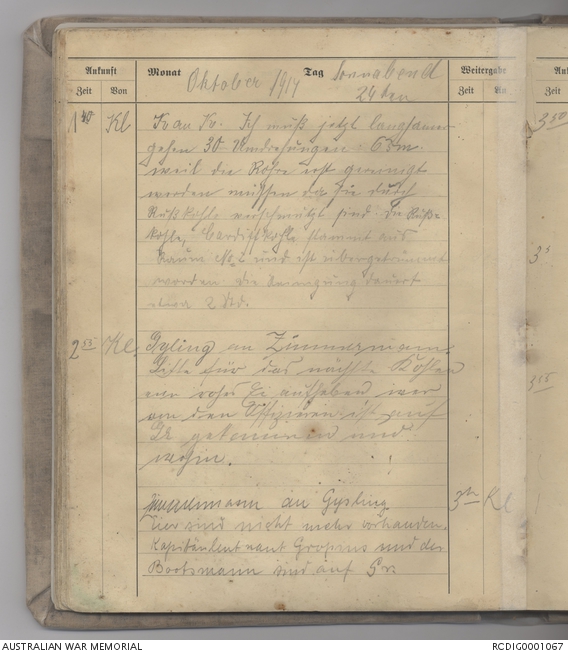 Ankunft Monat Oktober 1914 Tag Sonnabend Weitergabe
Zeit Von 24 ten Zeit An
1 40 Kl K an K. Ich muß jetzt langsamer 3 50
gehen 30 Umdrehungen = 6 sm.
weil die Rohre erst gereinigt
werden müssen da sie durch
Rußkohle verschmutzt sind. Die Ruße
kohle, Cardiffkohle stammt aus
Raum No. 2 und ist übergetrimmt
worden die Reinigung dauert
etwa 2 Std.
2 55 Kl. Gysling an Zimmermann
Bitte für das nächste Kohlen
ein rohes Ei aufheben wer
von den Offizieren ist auf
gekommen und
wohin.
Zimmermann an Gysling Kl
Eier sind nicht mehr vorhanden.
Kapitänleutnant Gropius und der
Bootsmann sind auf
3 55
AUSTRALIAN WAR MEMORIAL
RCDIG0001067